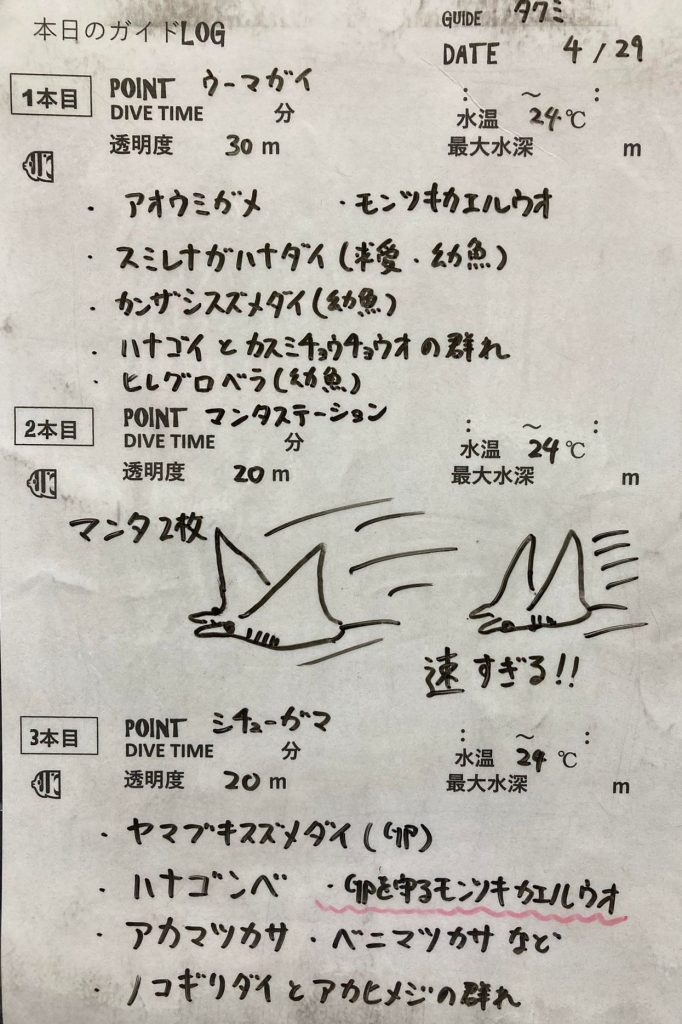 本日のガイドLOG
GUIDE タクミ
DATE 4/29
1本目 POINT ウーマガイ : ～ :
DIVE TIME 分 水温 24℃
透明度 30m 最大水深 m
・アオウミガメ ・モンツキカエルウオ
・スミレナガハナダイ(求愛・幼魚)
・カンザシスズメダイ(幼魚)
・ハナゴイとカスミチョウチョウオの群れ
・ヒレグロベラ(幼魚)
2本目 POINT マンタステーション : ～ :
DIVE TIME 分 水温 24℃
透明度 20m 最大水深 m
マンタ2枚
速すぎる!!
3本目 POINT シチューガマ : ～ :
DIVE TIME 分 水温 24℃
透明度 20m 最大水深 m
・ヤマブキスズメダイ( )
・ハナゴンベ ・を守るモンツキカエルウオ
・アカマツカサ・ベニマツカサなど
・ノコギリダイとアカヒメジの群れ